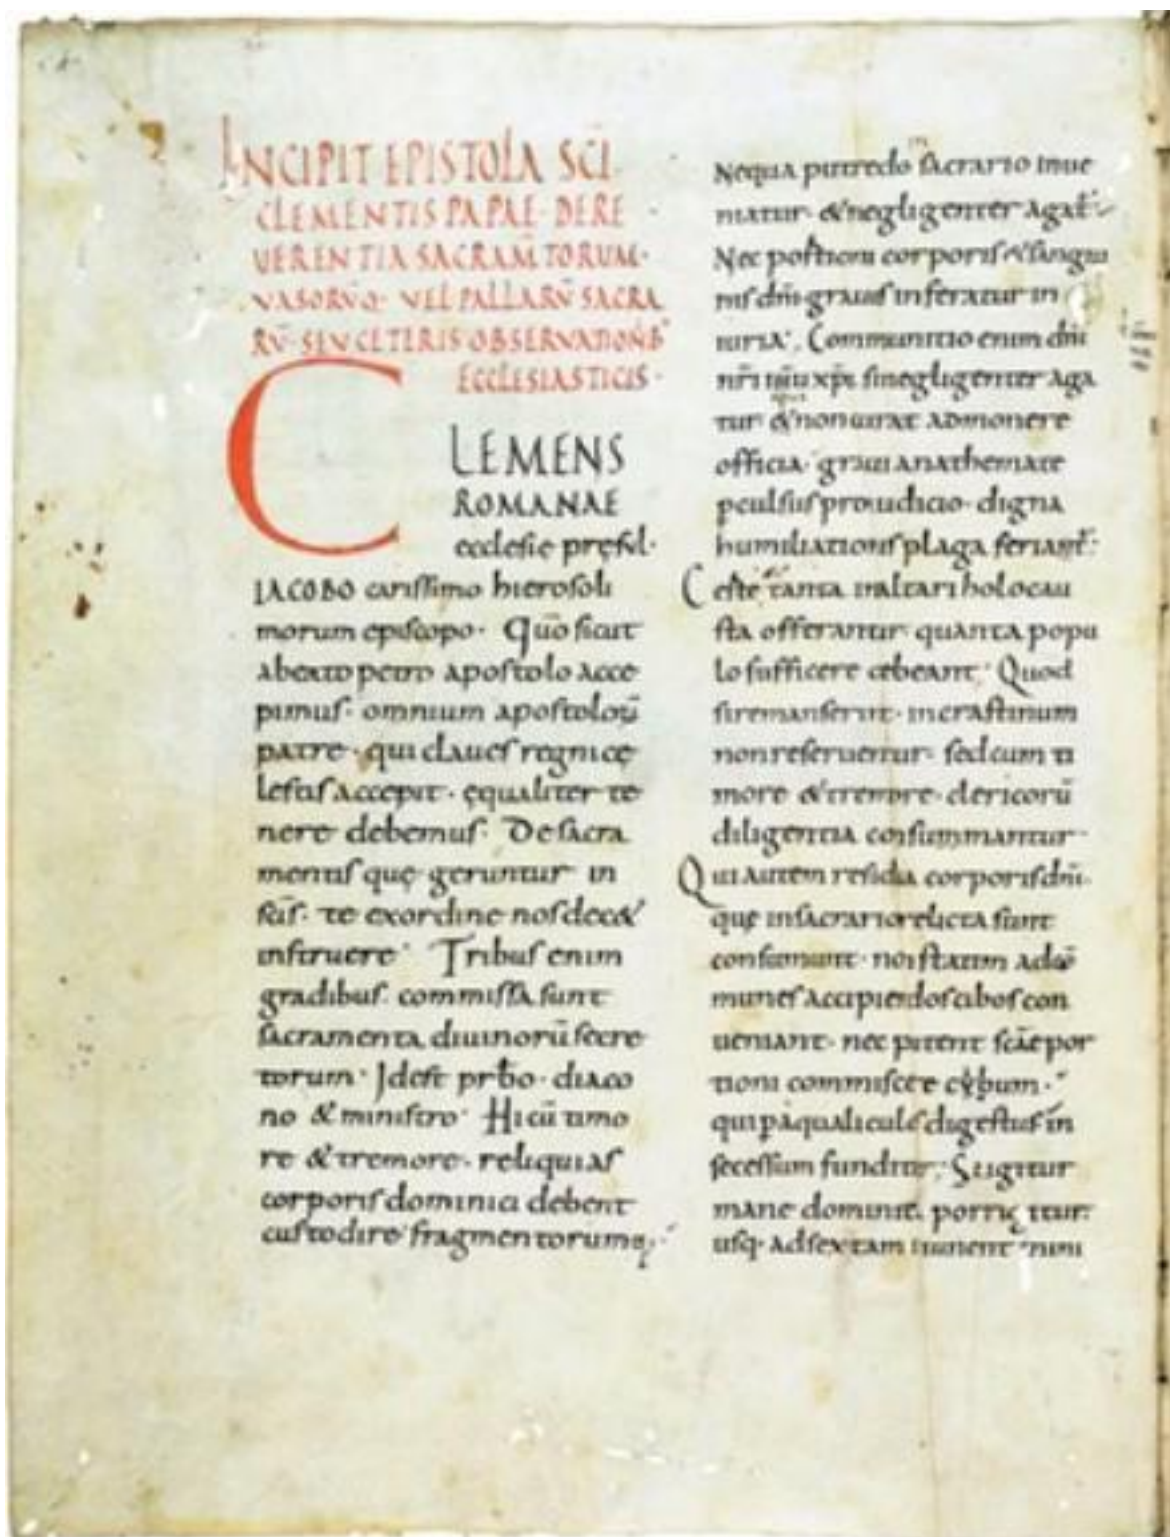 INCIPIT EPISTOLA SC̄I
CLEMENTIS PAPAE· DE RE
UERENTIA SACRAM̄TORUM·
VASORV̄Q· VEL PALLARV̄ SACRA
RV̄· SEV CETERIS OBSERVATIONIB
ECCLESIASTICIS·
CLEMENS
ROMANAE
ecclesię pręsul·
IACOBO carissimo hierosoli
morum episcopo· Quō sicut
abeato petro apostolo acce
pimus· omnium apostoloꝝ̄
patre· qui claues regni cę
lestis accepit· ęqualiter te
nere debemus· De sacra
mentis quę geruntur in
sc̄is· te exordine nos dec&
instruere· Tribus enim
gradibus commissa sunt
sacramenta diuinorū secre
torum· Idest prb̄o· diaco
no & ministro· Hi cū timo
re & tremore· reliquias
corporis dominici debent
custodire fragmentorum·
Nequa putredo in sacrario inue
niatur· & negligenter agat̄·
Nec portioni corporis & sangui
nis dn̄i grauis inferatur in
iuria· Communio enim dn̄i
nr̄i ih̄u xp̄i si negligenter aga
tur & non curat admonere
officia· graui anathemate
pculsus pro iudicio· digna
humiliationis plaga feriat̄·
Certe tanta inaltari holocau
sta offerantur quanta popu
lo sufficere debeant· Quod
siremanserint· incrastinum
non reseruentur· sed cum ti
more & tremore· clericorū
diligentia consummantur·
Qui autem residua corporis dn̄i·
quę insacrario relicta sunt
consumunt· non statim adcō
munes accipiendos cibos con
ueniant· nec putent sc̄ae por
tioni commiscere cybum·
qui p aqualiculos digestus in
secessum funditur· Si igitur
mane dominica porrigitur
usq· adsextam ieiunent mini